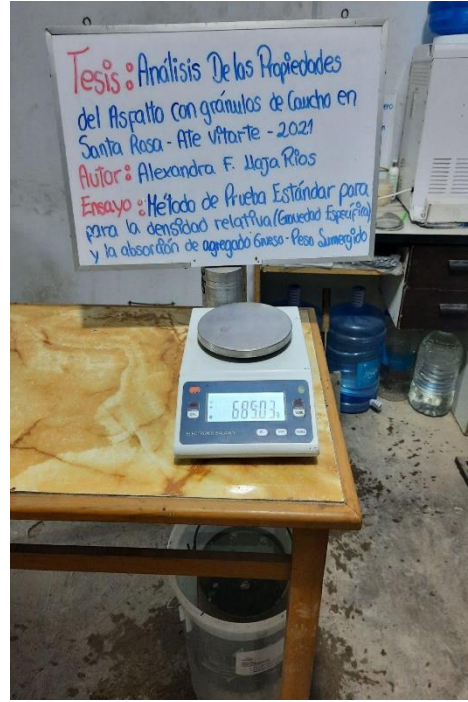 Tesis: Análisis De las Propiedades
del Asfalto con gránulos de Caucho en
Santa Rosa - Ate Vitarte - 2021
Autor: Alexandra F. Llaja Rios
Ensayo: Método de Prueba Estándar para
para la densidad relativa (Gravedad Específica)
y la absorción de agregado Grueso - Peso Sumergido
685.03g